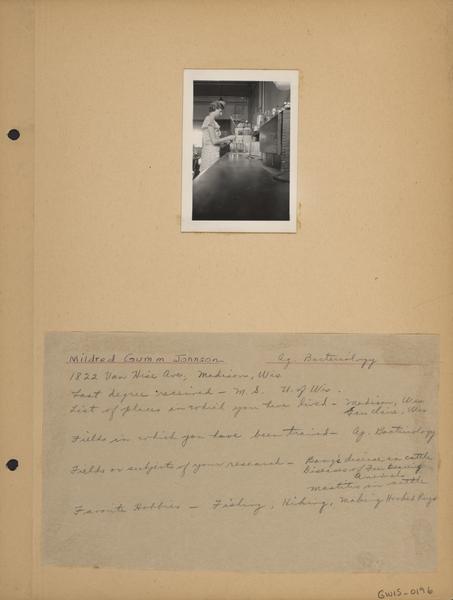 Mildred Gumm Johnson Ag. Bacteriology
1822 Van Hise Ave, Madison, Wis
Last degree received - M.S. U. of Wis.
List of places in which you have lived - Madison, Wis
Eau Claire, Wis
Fields in which you have been trained - Ag. Bacteriology
Fields or subjects of your research - Bang's disease in cattle
Diseases of Fur Bearing
Animals
mastitis in cattle
Favorite Hobbies - Fishing, Hiking, Making Hooked Rugs
GWIS-0196